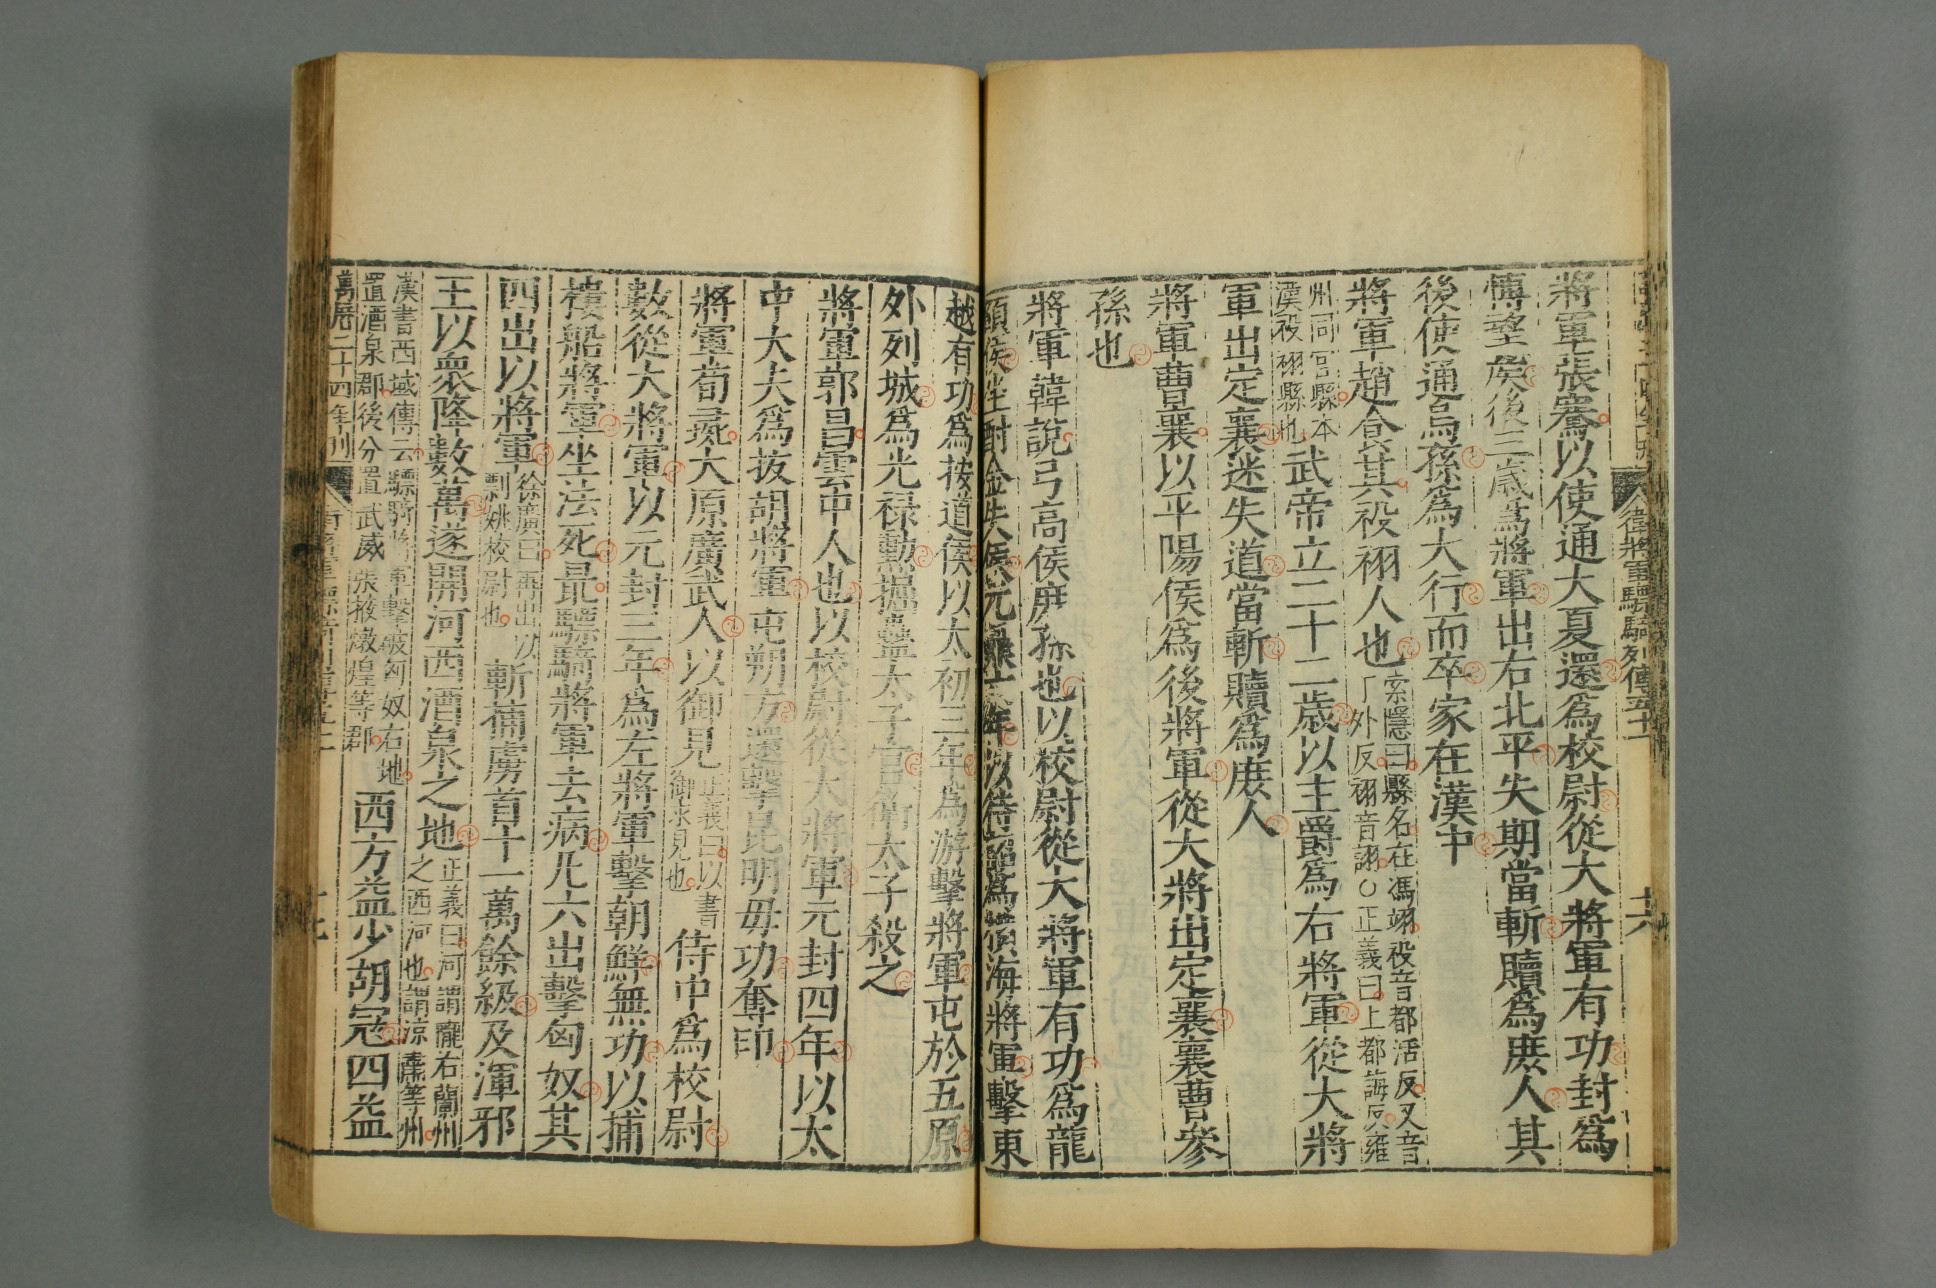 衛將軍驃騎列傳五十一
十六
將軍張騫以使通大夏還爲校尉從大將軍有功封爲
博望侯後三歲爲將軍出右北平失期當斬贖爲庶人其
後使通烏孫爲大行而卒家在漢中
將軍趙食其祋祤人也索隱曰縣名在馮翊祋音都活反又音
丁外反祤音詡○正義曰上都誨反雍
州同官縣本
漢祋祤縣也武帝立二十二歲以主爵爲右將軍從大將
軍出定襄迷失道當斬贖爲庶人
將軍曹襄以平陽侯爲後將軍從大將出定襄襄曹參
孫也
將軍韓說弓高侯庶孫也以校尉從大將軍有功爲龍
頟侯坐酎金失侯元鼎六年以待詔爲橫海將軍擊東
越有功爲按道侯以太初三年爲游擊將軍屯於五原
外列城爲光祿勳掘蠱太子宮衛太子殺之
將軍郭昌雲中人也以校尉從大將軍元封四年以太
中大夫爲拔胡將軍屯朔方還擊昆明毋功奪印
將軍荀彘大原廣武人以御見正義曰以書
御求見也侍中爲校尉
數從大將軍以元封三年爲左將軍擊朝鮮無功以捕
樓船將軍坐法死最驃騎將軍去病凡六出擊匈奴其
四出以將軍徐廣曰再出以
剽姚校尉也斬捕虜首十一萬餘級及渾邪
王以衆降數萬遂開河西酒泉之地正義曰河謂隴右蘭州
之西河也謂涼肅等州
漢書西域傳云驃騎將軍擊破匈奴右地
置酒泉郡後分置武威張掖燉煌等郡西方益少胡寇四益
萬曆二十四年刊